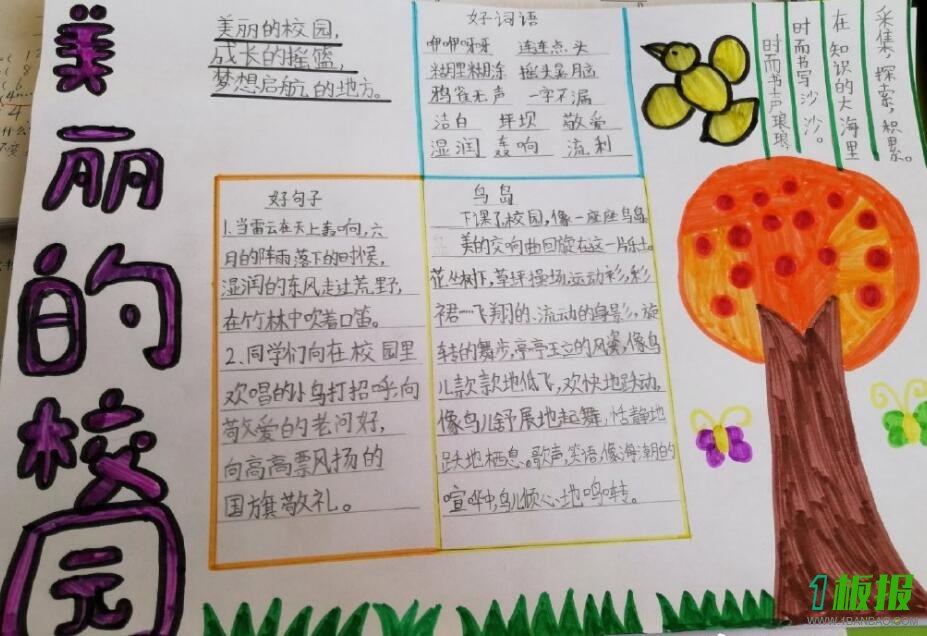 美丽的校园
美丽的校园，
成长的摇篮，
梦想启航的地方。
好词语
咿咿呀呀 连连点头
糊里糊涂 摇头晃脑
鸦雀无声 一字不漏
洁白 坪坝 敬爱
湿润 轰响 流利
采集，探索，积累。
在知识的大海里
时而书写沙沙。
时而书声琅琅，
好句子
1.当雷云在天上轰响，六
月的阵雨落下的时候，
湿润的东风走过荒野，
在竹林中吹着口笛。
2.同学们向在校园里
欢唱的小鸟打招呼，向
敬爱的老问好，
向高高票风扬的
国旗敬礼。
鸟岛
下课了，校园，像一座座鸟岛
美的交响曲回旋在这一片乐土。
花丛树下，草坪操场，运动衫，彩
裙……飞翔的、流动的身影，旋
转的舞步，亭亭玉立的风姿，像鸟
儿款款地低飞，欢快地跃动，
像鸟儿舒展地起舞，恬静地
跃地栖息。歌声，笑语，像海潮的
喧哗中，鸟儿倾心地鸣啭。
1板报
WWW.1BANBAO.COM